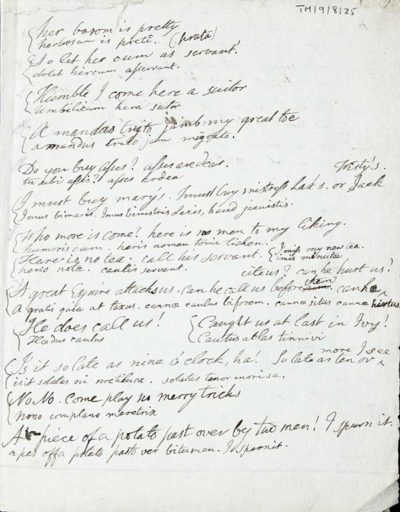 TM/9/8/25
her bosom is pretty
herbosum is preté. (prata)
So let her cum as servant!
solet hircum asservant.
Humble I come here a suitor
umbilicum hera sutor
A mandas trito jamb. my great toe
amandus trito jam migrato.
Do you buy asses? asses are dear.
asses ardea
Misty's.
I must buy mary's. I must buy or Jack
Imus binaris. Imus
Who more is come? here is no men to my liking.
humoris cum. haris nomen tomi lichen.
Here is no tea. call his servant. I miss my new tea.
haris nole. caulis servent. imis minutea
cite us? can he hurt us?
A great Squire attacks us. Can he call us before them can he
A gratis gaia at taxus. canna caulus biforem. canna sitas canna hirtus.
He does call us!
Hædus caulus
Caught us at last in Ivy!
Cautus atlas innivi
Is it so late as nine o'clock, ha! So late as ten or more I see
isit solatas ni noctiluca. solatas tenor morisa.
No No. Come play no merry tricks
nono complano meretrix
A piece of a potato past over by two men! I spurn it.
apes offa potato past over bitumen. I spernit.